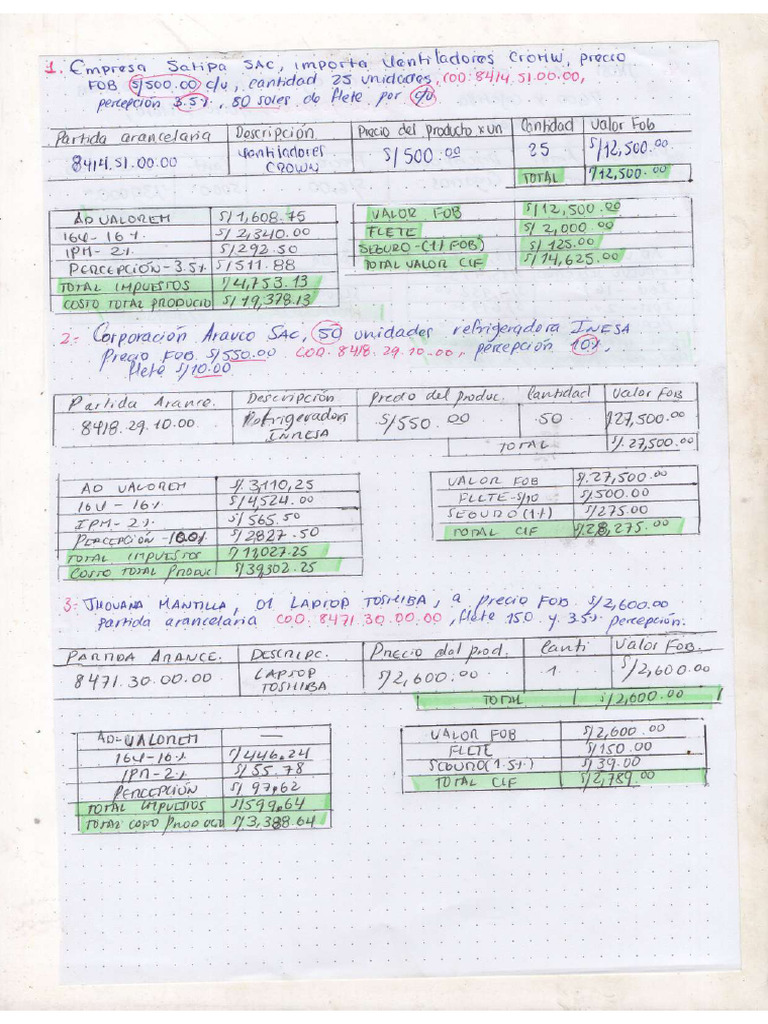 1. Empresa Satipa SAC, importa Ventiladores CROWN, precio
FOB S/500.00 c/u, cantidad 25 unidades, COD: 8414.51.00.00,
percepción 3.5%, 80 soles de flete por c/u
Partida arancelaria Descripción Precio del producto x un Cantidad Valor Fob
8414.51.00.00 Ventiladores CROWN S/500.00 25 S/12,500.00
TOTAL S/12,500.00
AD VALOREM S/1,608.75
IGV-16% S/2,340.00
IPM-2% S/292.50
PERCEPCIÓN-3.5% S/511.88
TOTAL IMPUESTOS S/4,753.13
COSTO TOTAL PRODUCTO S/19,378.13
VALOR FOB S/12,500.00
FLETE S/2,000.00
SEGURO-(1% FOB) S/125.00
TOTAL VALOR CIF S/14,625.00
2.- Corporación Arauco SAC, 50 unidades refrigeradora INESA
Precio FOB S/550.00 COD. 8418.29.10.00, percepción 10%,
flete S/10.00
Partida Arance. Descripción Precio del produc. Cantidad Valor FOB
8418.29.10.00 Refrigeradora INRESA S/550.00 50 S/27,500.00
TOTAL S/.27,500.00
AD VALOREM S/.3,110,25
IGV-16% S/4524.00
IPM-2% S/565.50
PERCEPCIÓN-10% S/2827.50
TOTAL IMPUESTOS S/11,027.25
COSTO TOTAL PRODUC S/39,302.25
VALOR FOB S/.27,500.00
FLETE-S/10 S/500.00
SEGURO(1%) S/275.00
TOTAL CIF S/28,275.00
3.- JHOVANA MANTILLA, 01 LAPTOP TOSHIBA, a precio FOB S/2,600.00
partida arancelaria COD. 8471.30.00.00, flete 150 y 3.5% percepción.
PARTIDA ARANCE. DESCRIPC. Precio del prod. Canti Valor FOB.
8471.30.00.00 LAPTOP TOSHIBA S/2,600.00 1 S/2,600.00
TOTAL S/2,600.00
AD-VALOREM —
IGV-16% S/446.24
IPM-2% S/55.78
PERCEPCIÓN S/97,62
TOTAL IMPUESTOS S/599,64
TOTAL COSTO PRODUCTO S/3,388.64
VALOR FOB S/2,600.00
FLETE S/150.00
SEGURO(1.5%) S/39.00
TOTAL CIF S/2,789.00